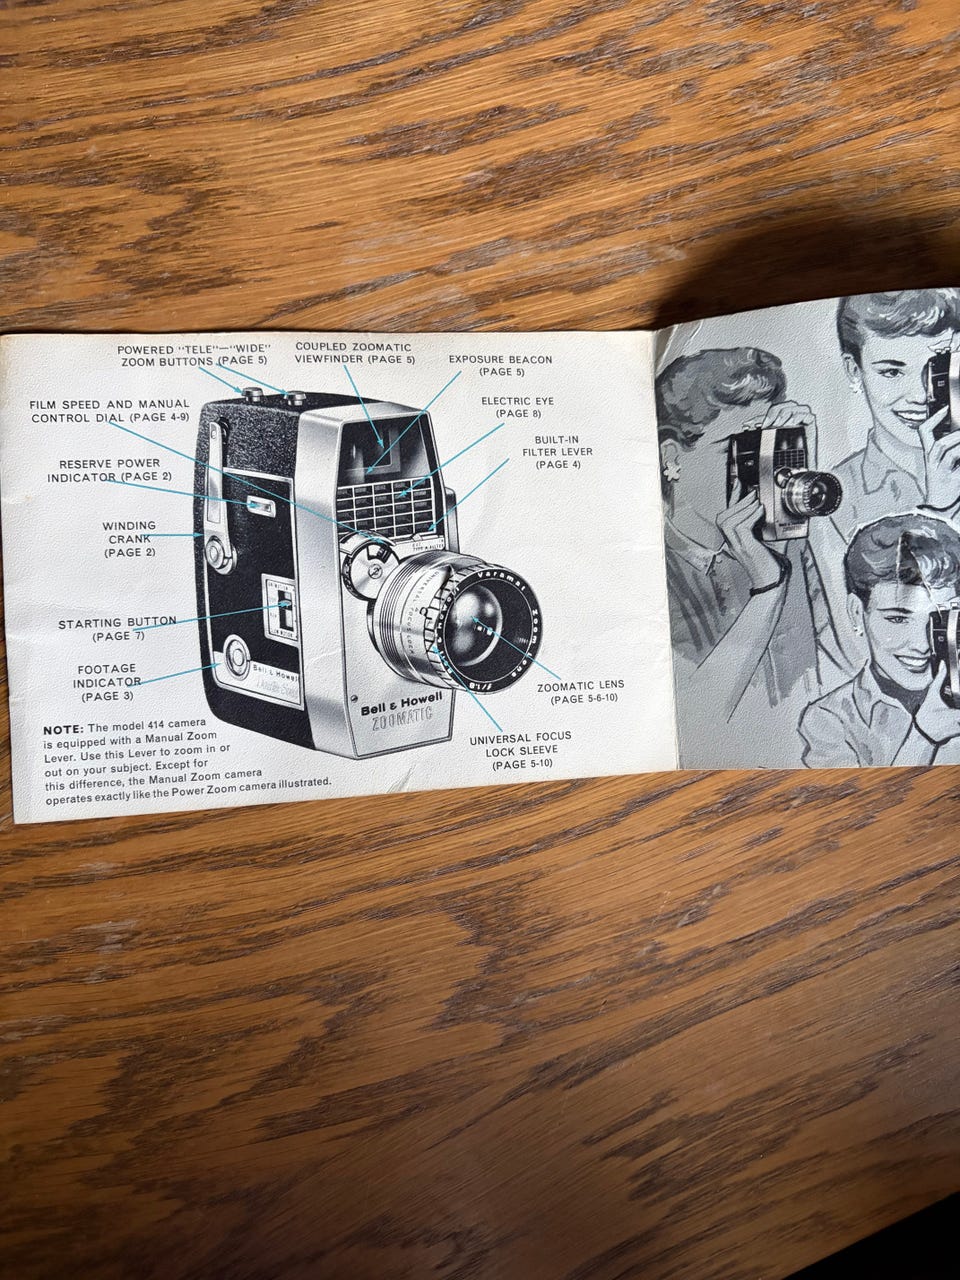 POWERED "TELE"—"WIDE"
ZOOM BUTTONS (PAGE 5)
COUPLED ZOOMATIC
VIEWFINDER (PAGE 5)
EXPOSURE BEACON
(PAGE 5)
FILM SPEED AND MANUAL
CONTROL DIAL (PAGE 4-9)
ELECTRIC EYE
(PAGE 8)
BUILT-IN
FILTER LEVER
(PAGE 4)
RESERVE POWER
INDICATOR (PAGE 2)
WINDING
CRANK
(PAGE 2)
STARTING BUTTON
(PAGE 7)
FOOTAGE
INDICATOR
(PAGE 3)
TYPE A FILTER
UNIVERSAL FOCUS LOCK
Varamat Zoom Lens f/1.8
Bell & Howell
Bell & Howell
ZOOMATIC
ZOOMATIC LENS
(PAGE 5-6-10)
UNIVERSAL FOCUS
LOCK SLEEVE
(PAGE 5-10)
NOTE: The model 414 camera
is equipped with a Manual Zoom
Lever. Use this Lever to zoom in or
out on your subject. Except for
this difference, the Manual Zoom camera
operates exactly like the Power Zoom camera illustrated.